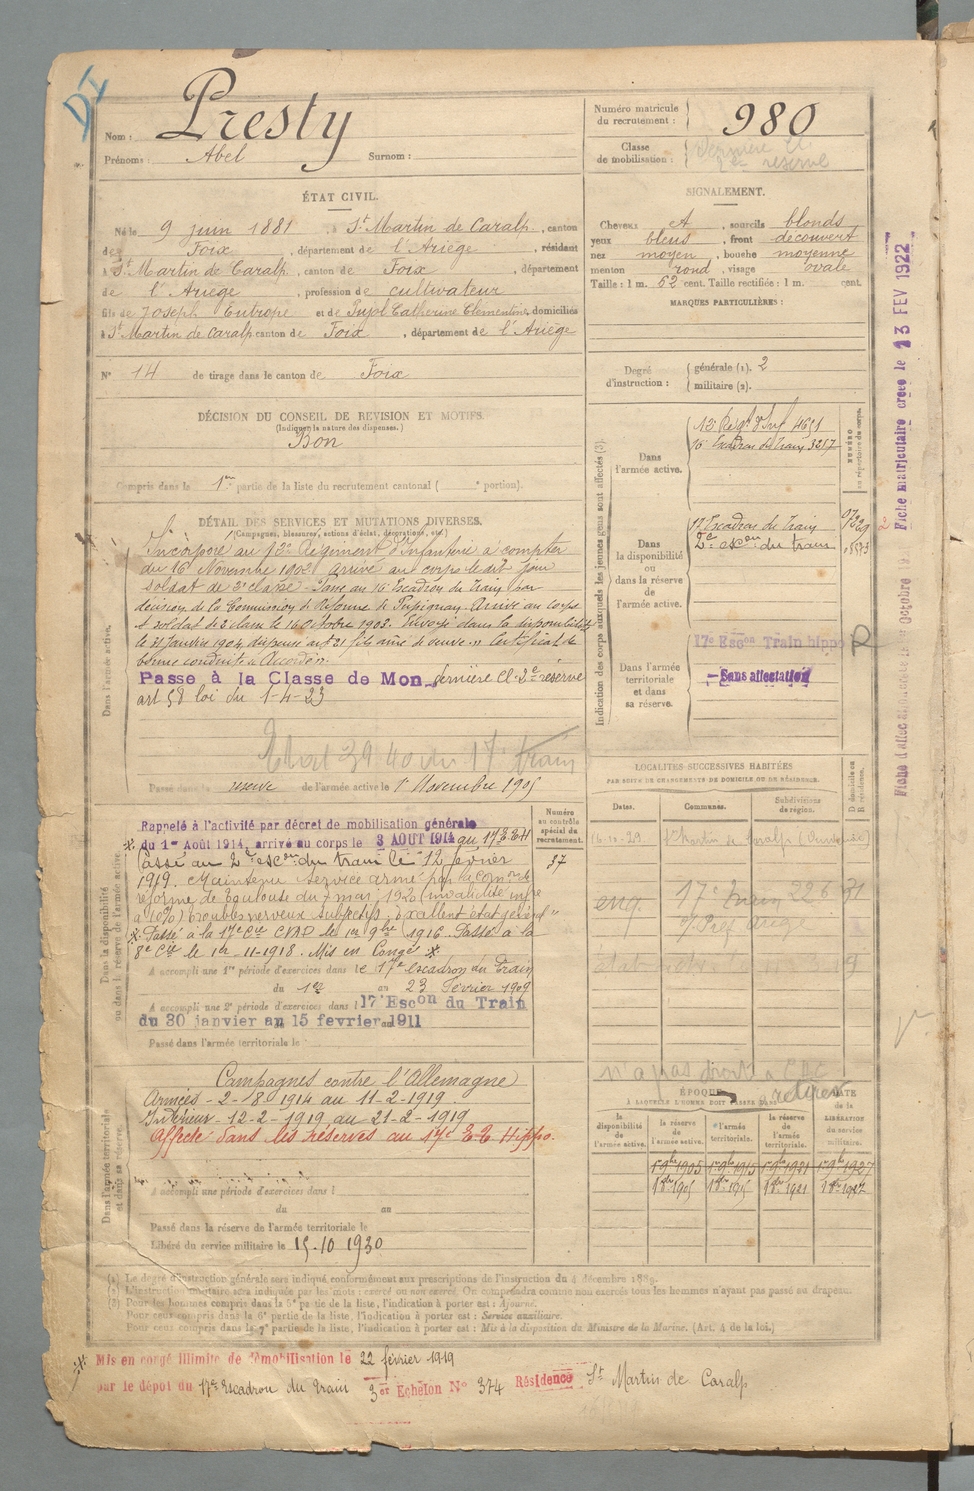 DI
Nom : Presty
Prénoms : Abel Surnom :
Numéro matricule du recrutement : 980
Classe de mobilisation : dernière Cl. 2e réserve
ÉTAT CIVIL.
Né le 9 juin 1881, à St Martin de Caralp, canton
de Foix, département de l'Ariège, résidant
à St Martin de Caralp, canton de Foix, département
de l'Ariège, profession de cultivateur
fils de Joseph Eutrope et de Pujol Catherine Clémentine, domiciliés
à St Martin de Caralp canton de Foix, département de l'Ariège
N° 14 de tirage dans le canton de Foix
SIGNALEMENT.
Cheveux et, sourcils blonds
yeux bleus, front découvert
nez moyen, bouche moyenne
menton rond, visage ovale
Taille : 1 m. 62 cent. Taille rectifiée : 1 m. cent.
MARQUES PARTICULIÈRES :
Degré d'instruction : générale (1). 2
militaire (2).
DÉCISION DU CONSEIL DE REVISION ET MOTIFS.
(Indiquer la nature des dispenses.)
Bon
Compris dans la 1re partie de la liste du recrutement cantonal ( e portion).
DÉTAIL DES SERVICES ET MUTATIONS DIVERSES.
(Campagnes, blessures, actions d'éclat, décorations, etc.)
Dans l'armée active.
Incorporé au 13e Régiment d'Infanterie à compter
du 16 Novembre 1902 arrivé au corps le dit jour
soldat de 2e classe. Passé au 16 Escadron du Train par
décision de la Commission de réforme de Perpignan. Arrivé au corps
et soldat de 2e classe le 16 Octobre 1903. Envoyé dans la disponibilité
le 31 Janvier 1904, dispensé art 21 fils aîné de veuve. Certificat de
bonne conduite "Accordé".
Passé à la Classe de Mon. dernière Cl. 2e réserve
art 58 loi du 1-4-23
Etat 39.40 du 17e train
Passé dans la réserve de l'armée active le 1er Novembre 1905
Indication des corps auxquels les jeunes gens sont affectés (3).
NUMÉRO au répertoire du corps.
Dans l'armée active.
16e Escadron du Train 3217
Dans la disponibilité ou dans la réserve de l'armée active.
17 Escadron du Train
2e escon du train
Dans l'armée territoriale et dans sa réserve.
17e Escon Train hippo R
Sans affectation
Fiche matriculaire créée le 13 FEV 1922
Dans la disponibilité ou dans la réserve de l'armée active.
Numéro au contrôle spécial du recrutement.
37
Rappelé à l'activité par décret de mobilisation générale
* du 1er Août 1914, arrivé au corps le 3 AOUT 1914 au 17e ETH
Passé au 2e escon du train le 12 février
1919. Maintenu service armé par la Comon de
réforme de Toulouse du 7 mai 1920 (invalidité infre
à 10%) troubles nerveux subjectifs, excellent état général "
* Passé à la 17e Cie CVAD le 1er 9bre 1916. Passé à la
8e Cie le 1er-11-1918. Mis en Congé *
A accompli une 1re période d'exercices dans le 17e escadron du Train
du 1er au 23 Février 1909
A accompli une 2e période d'exercices dans l 17e Escon du Train
du 30 janvier au 15 fevrier 1911
Passé dans l'armée territoriale le
LOCALITÉS SUCCESSIVES HABITÉES
PAR SUITE DE CHANGEMENTS DE DOMICILE OU DE RÉSIDENCE.
Dates. Communes. Subdivisions de région. D domicile ou R résidence.
16-10-29 St Martin de Caralp
17e Train 22.6.31
n'a pas droit à CAC
Dans l'armée territoriale et dans sa réserve.
Campagnes contre l'Allemagne
Armées - 2-8-1914 au 11-2-1919.
Intérieur - 12-2-1919 au 21-2-1919
Affecté dans les réserves au 17e E T Hippo.
A accompli une période d'exercices dans l
du au
Passé dans la réserve de l'armée territoriale le
Libéré du service militaire le 15-10 1930
ÉPOQUE
À LAQUELLE L'HOMME DOIT PASSER DANS
DATE de la LIBÉRATION du service militaire.
la disponibilité de l'armée active. la réserve de l'armée active. l'armée territoriale. la réserve de l'armée territoriale.
1er 9bre 1905 1er 9bre 1915 1er 9bre 1921 1er 9bre 1927
(1) Le degré d'instruction générale sera indiqué conformément aux prescriptions de l'instruction du 4 décembre 1889.
(2) L'instruction militaire sera indiquée par les mots : exercé ou non exercé. On comprendra comme non exercés tous les hommes n'ayant pas passé au drapeau.
(3) Pour les hommes compris dans la 5e partie de la liste, l'indication à porter est : Ajourné.
Pour ceux compris dans la 6e partie de la liste, l'indication à porter est : Service auxiliaire.
Pour ceux compris dans la 7e partie de la liste, l'indication à porter est : Mis à la disposition du Ministre de la Marine. (Art. 4 de la loi.)
* Mis en congé illimité de démobilisation le 22 février 1919
par le dépôt du 17e Escadron du Train 3er Echelon N° 374 Résidence St Martin de Caralp